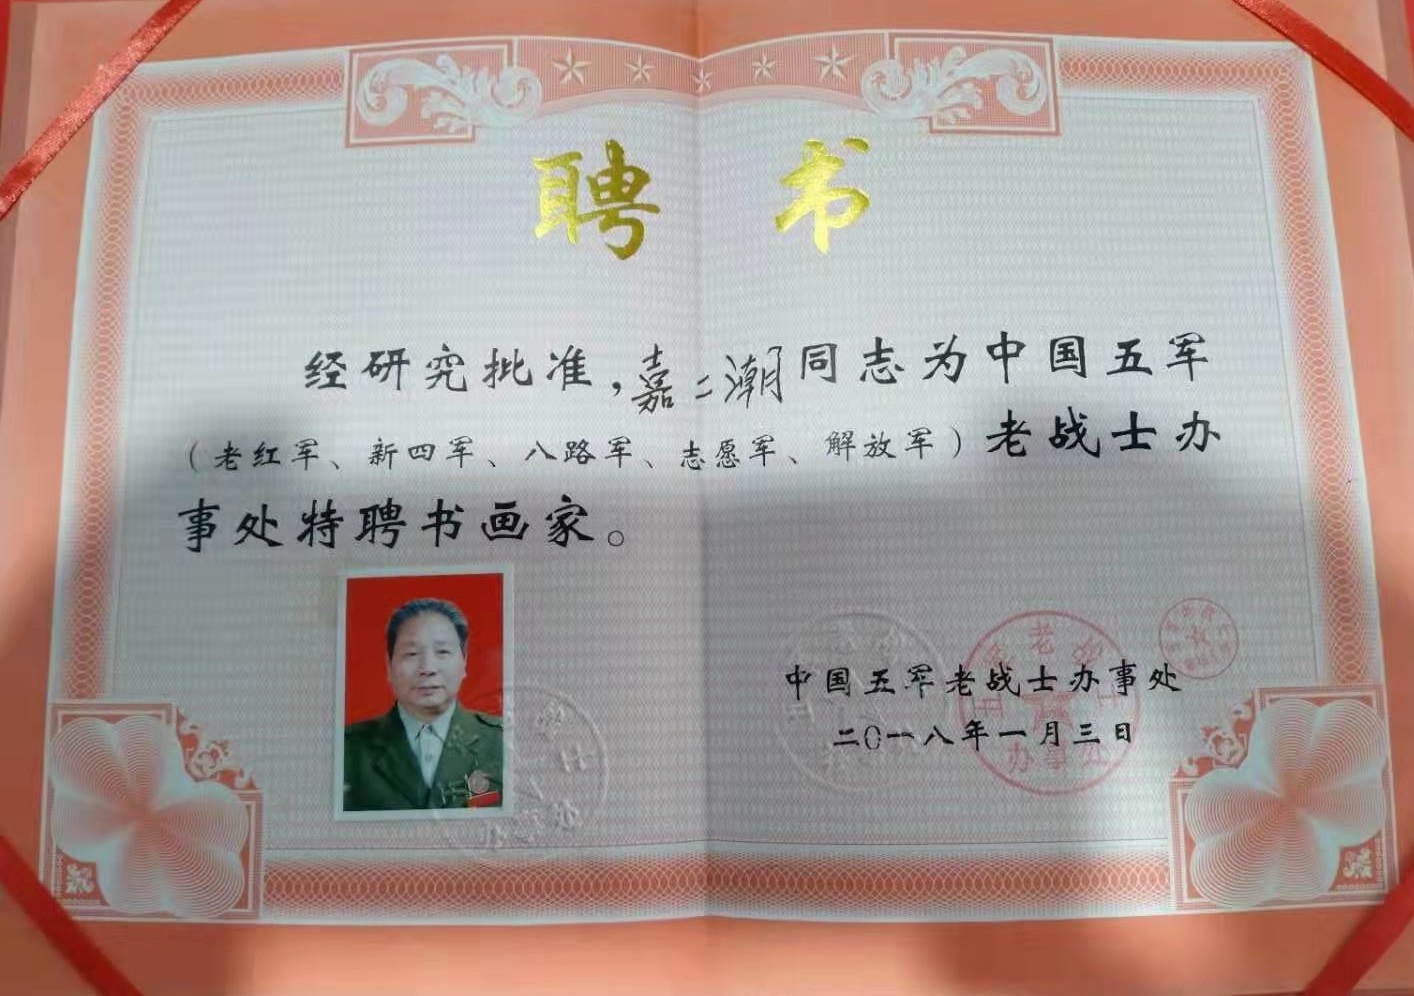 聘书
经研究批准，嘉二潮同志为中国五军
（老红军、新四军、八路军、志愿军、解放军）老战士办
事处特聘书画家。
中国五军老战士办事处
二〇一八年一月三日